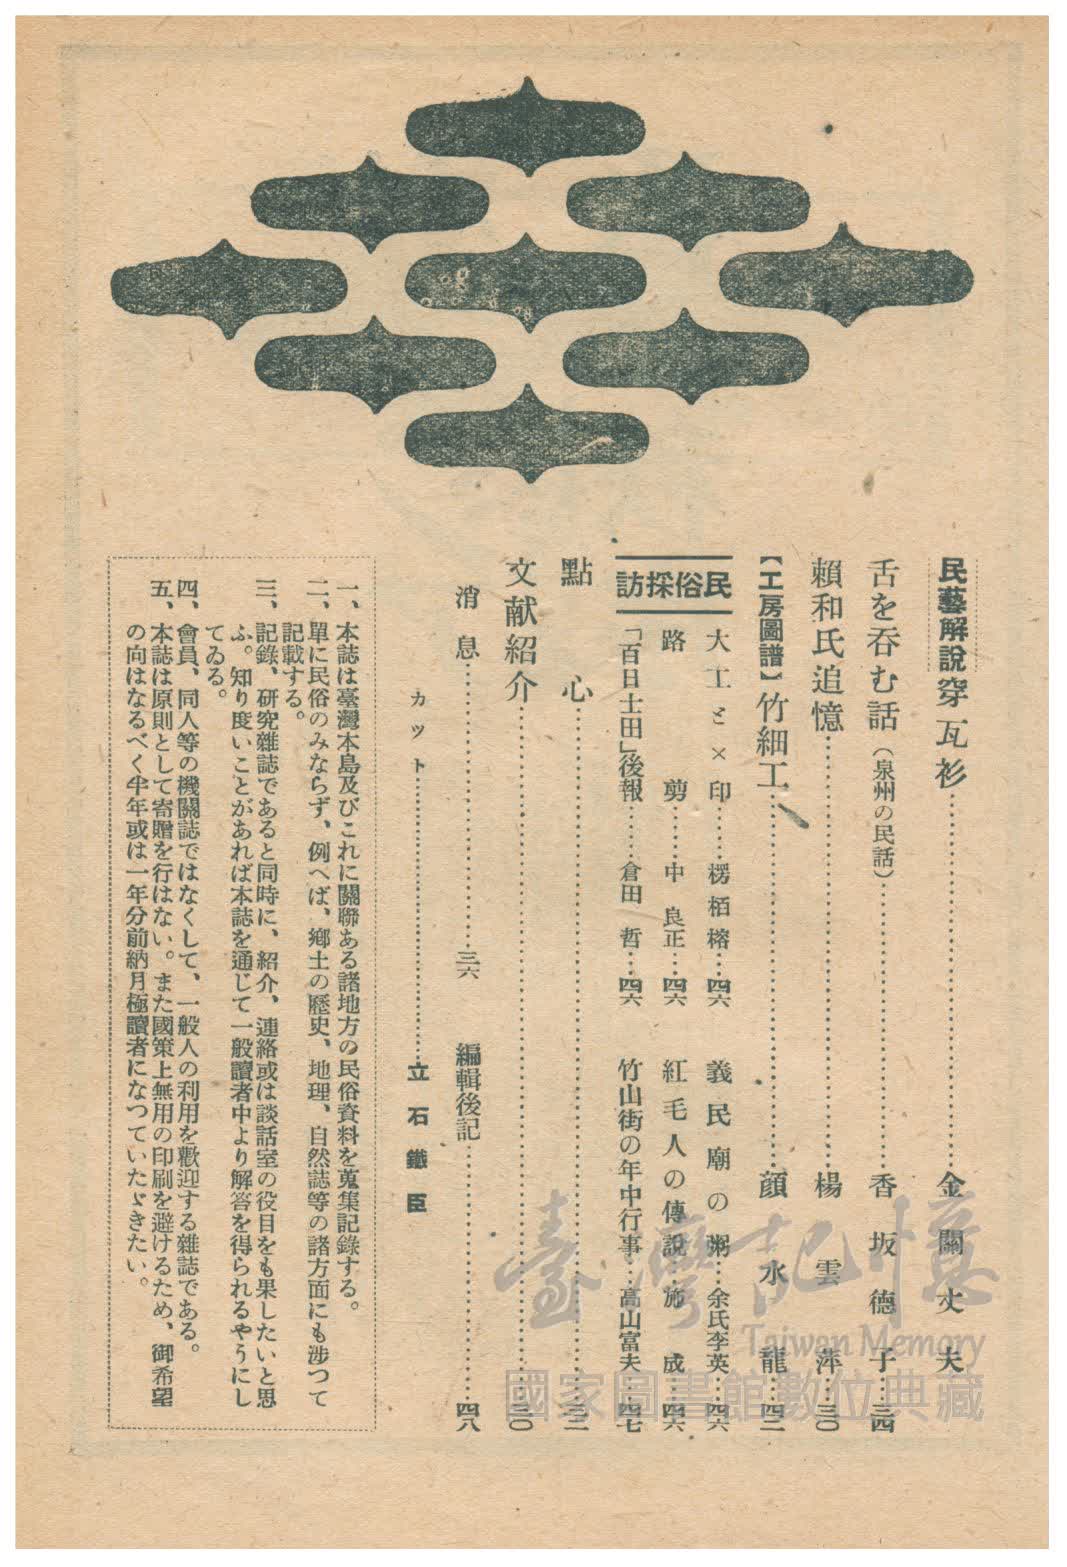 民藝解說 穿瓦衫……金關丈夫
舌を呑む話(泉州の民話)……香坂德子…三四
賴和氏追憶……楊雲萍…三〇
【工房圖譜】竹細工……顏水龍…四二
民俗採訪
大工と×印……楞栢榕…四六
義民廟の粥…余氏李英…四六
路剪……中良正…四六
紅毛人の傳說…施成…四六
「百日士田」後報……倉田哲…四六
竹山街の年中行事…高山富夫…四七
點心……三二
文献紹介……三〇
消息……三六
編輯後記……四八
カット……立石鐵臣
一、本誌は臺灣本島及びこれに關聯ある諸地方の民俗資料を蒐集記錄する。
二、單に民俗のみならず、例へば、鄕土の歷史、地理、自然誌等の諸方面にも涉つて
記載する。
三、記錄、硏究雜誌であると同時に、紹介、連絡或は談話室の役目をも果したいと思
ふ。知り度いことがあれば本誌を通じて一般讀者中より解答を得られるやうにし
てゐる。
四、會員、同人等の機關誌ではなくして、一般人の利用を歡迎する雜誌である。
五、本誌は原則として寄贈を行はない。また國策上無用の印刷を避けるため、御希望
の向はなるべく半年或は一年分前納月極讀者になつていたゞきたい。
臺灣記憶
Taiwan Memory
國家圖書館數位典藏